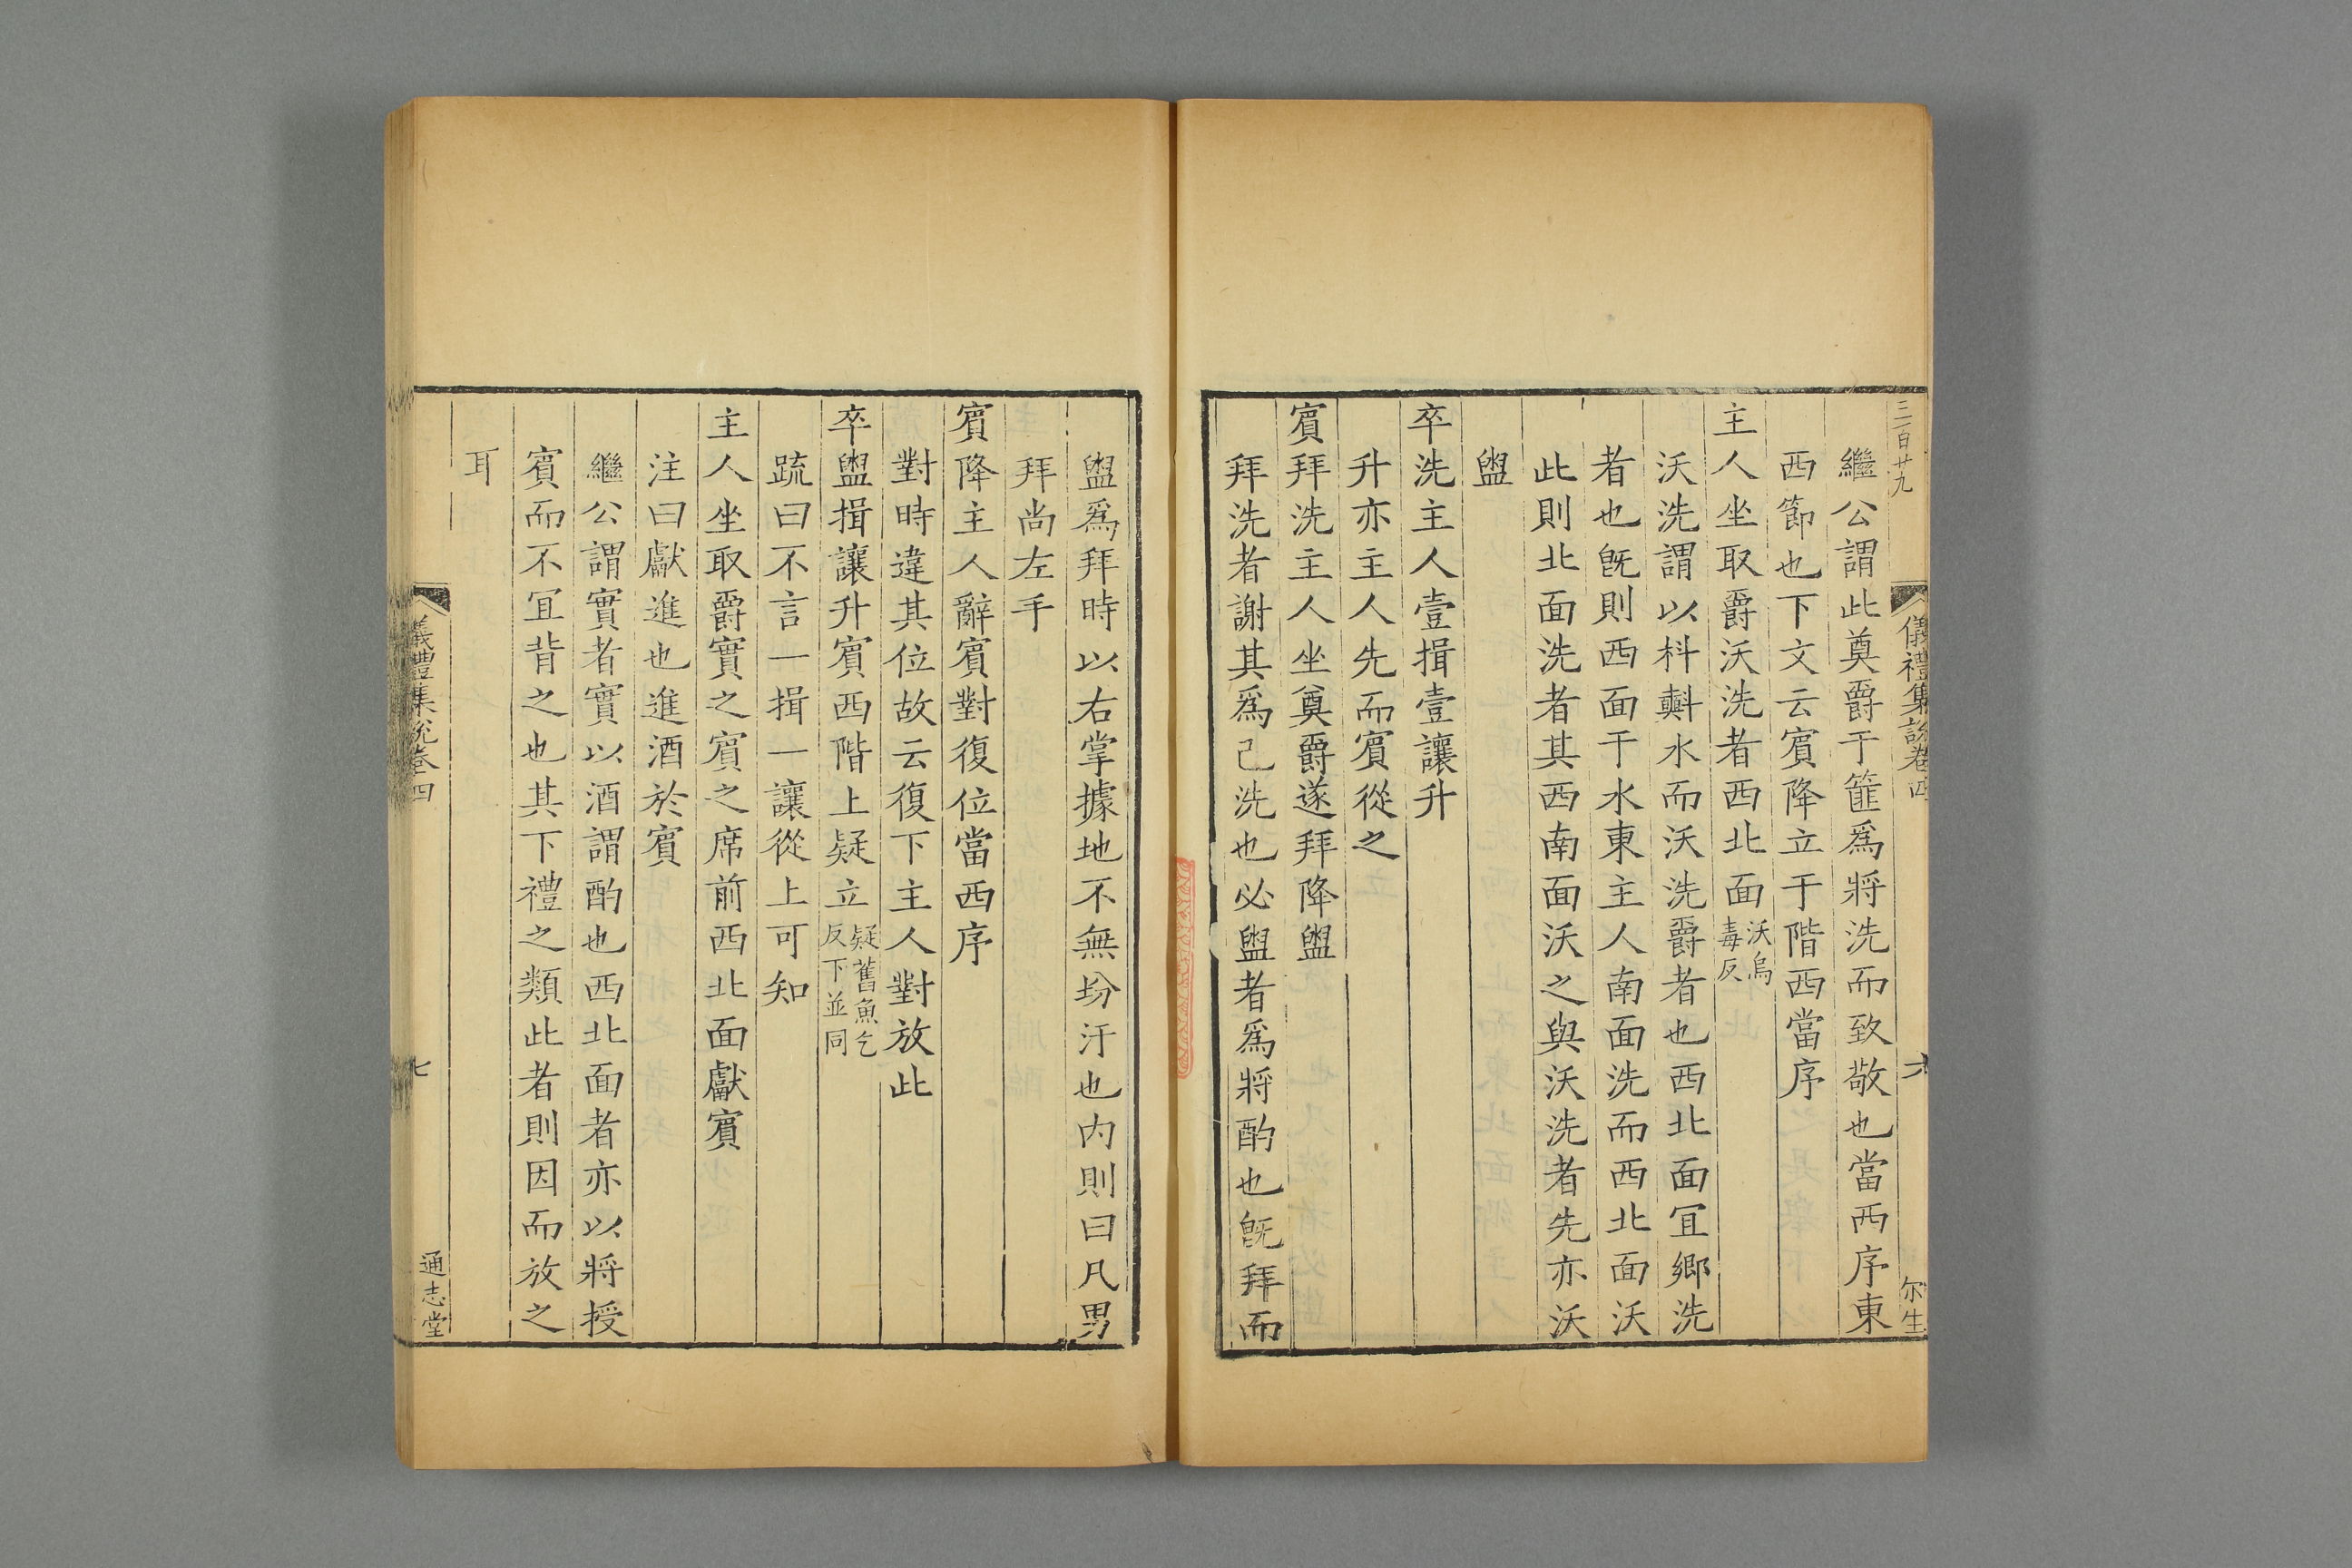 三百廿九
儀禮集說卷四
六
尔生
繼公謂此奠爵于篚爲將洗而致敬也當西序東
西節也下文云賓降立于階西當序
主人坐取爵沃洗者西北面沃烏毒反
沃洗謂以枓㪺水而沃洗爵者也西北面宜鄉洗
者也旣則西面于水東主人南面洗而西北面沃
此則北面洗者其西南面沃之與沃洗者先亦沃
盥
卒洗主人壹揖壹讓升
升亦主人先而賓從之
賓拜洗主人坐奠爵遂拜降盥
拜洗者謝其爲己洗也必盥者爲將酌也旣拜而
盥爲拜時以右掌據地不無坋汙也内則曰凡男
拜尚左手
賓降主人辭賓對復位當西序
對時違其位故云復下主人對放此
卒盥揖讓升賓西階上疑立疑舊魚乞反下並同
疏曰不言一揖一讓從上可知
主人坐取爵實之賓之席前西北面獻賓
注曰獻進也進酒於賓
繼公謂實者實以酒謂酌也西北面者亦以將授
賓而不宜背之也其下禮之類此者則因而放之
耳
儀禮集說卷四
七
通志堂